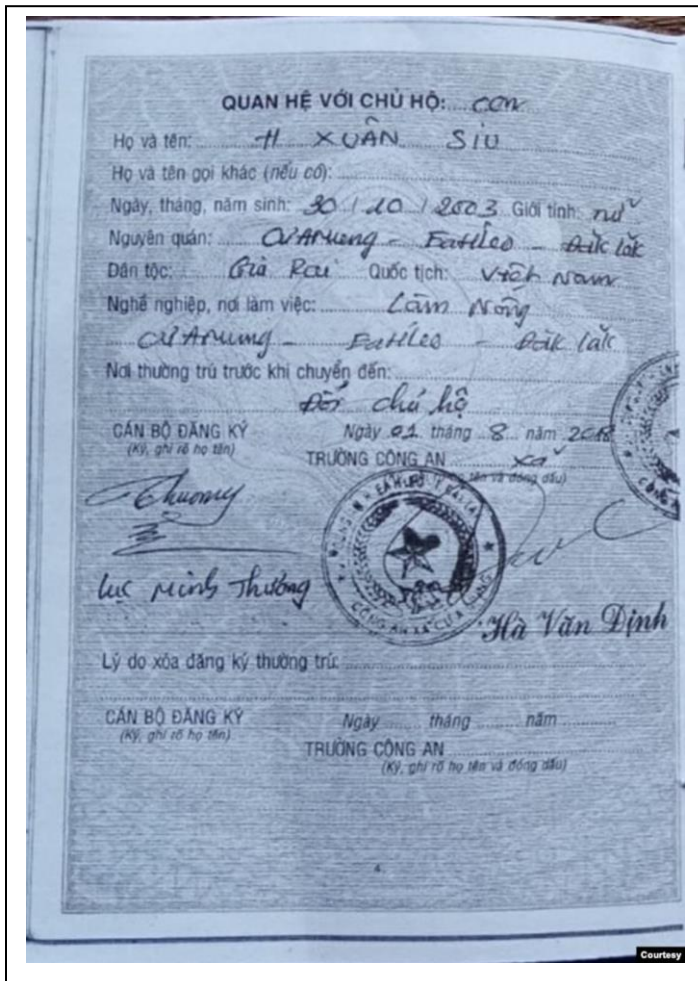 QUAN HỆ VỚI CHỦ HỘ: con
Họ và tên: H XUÂN SIU
Họ và tên gọi khác (nếu có):
Ngày, tháng, năm sinh: 30 / 10 / 2003 Giới tính: nữ
Nguyên quán: Cư Amung - EaHleo - Đăk lăk
Dân tộc: Gia Rai Quốc tịch: Việt Nam
Nghề nghiệp, nơi làm việc: Làm Nông
Cư Amung - EaHleo - Đăk lăk
Nơi thường trú trước khi chuyển đến:
Đổi chủ hộ
CÁN BỘ ĐĂNG KÝ Ngày 01 tháng 8 năm 2018
(Ký, ghi rõ họ tên) TRƯỞNG CÔNG AN xã
tên và đóng dấu)
Lục Minh Thường
CÔNG AN XÃ CƯ A MUNG
Hà Văn Định
Lý do xóa đăng ký thường trú:
CÁN BỘ ĐĂNG KÝ Ngày tháng năm
(Ký, ghi rõ họ tên) TRƯỞNG CÔNG AN
(Ký, ghi rõ họ tên và đóng dấu)
4
Courtesy